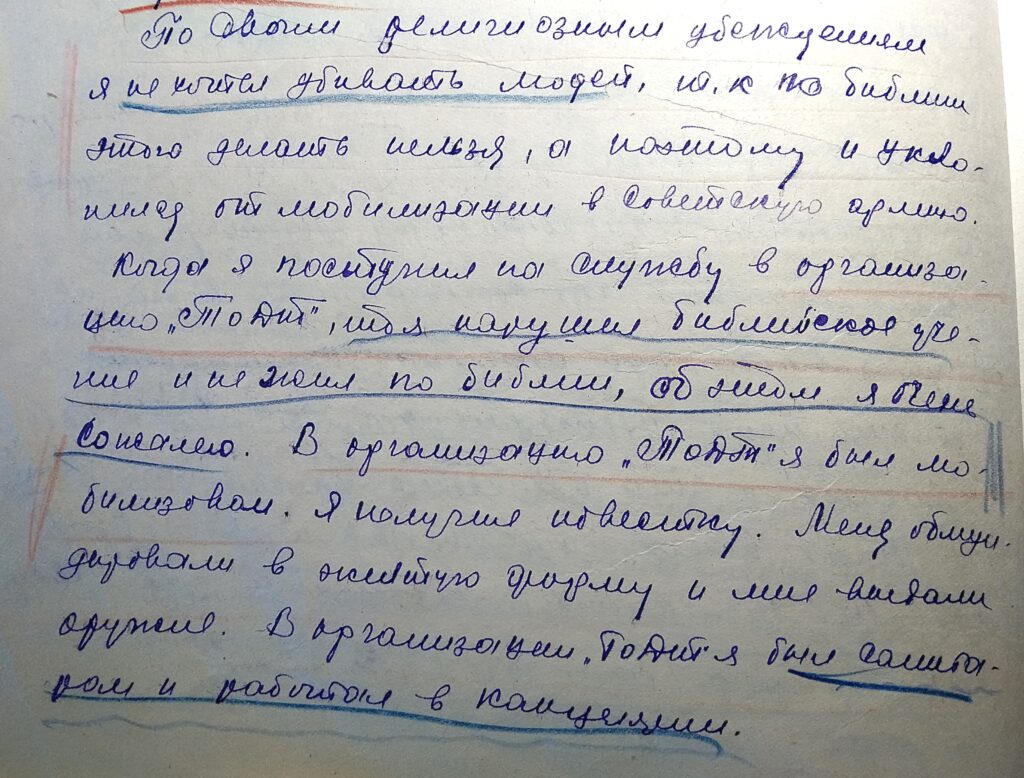 По своим религиозным убеждениям
я не хотел убивать людей, т. к по библии
этого делать нельзя, а поэтому и укло-
нился от мобилизации в Советскую армию.
Когда я поступил на службу в организа-
цию „ТОДТ", то я нарушил библийское уче-
ние и не жил по библии, об этом я очень
сожалею. В организацию „ТОДТ" я был мо-
билизован. Я получил повестку. Меня обмун-
дировали в желтую форму и мне выдали
оружие. В организации „ТОДТ я был санита-
ром и работал в канцелярии.